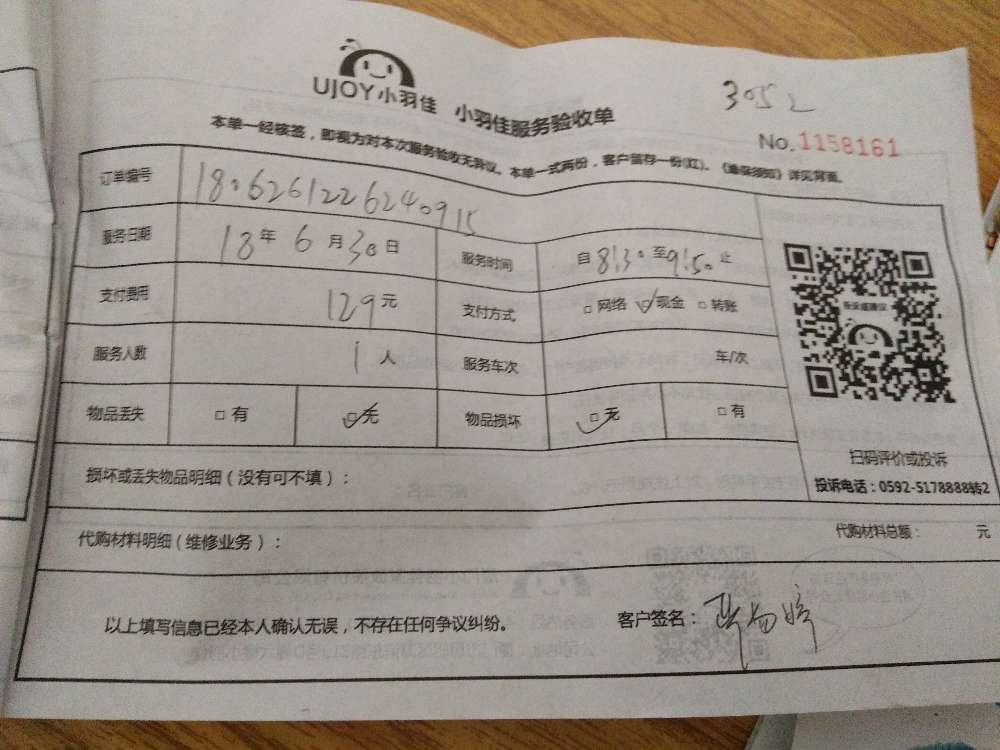 UJOY小羽佳 小羽佳服务验收单
3052
No.1158161
本单一经核签，即视为对本次服务验收无异议。本单一式两份，客户留存一份(红)。《维保须知》详见背面。
订单编号 1806261226240915
服务日期 18年6月30日 服务时间 自8:30至9:50止
支付费用 129元 支付方式 □网络 ☑现金 □转账
服务人数 1人 服务车次 车/次
物品丢失 □有 ☑无 物品损坏 ☑无 □有
扫码评价或投诉
投诉电话：0592-5178888转2
损坏或丢失物品明细（没有可不填）：
代购材料明细（维修业务）： 代购材料总额： 元
以上填写信息已经本人确认无误，不存在任何争议纠纷。 客户签名：